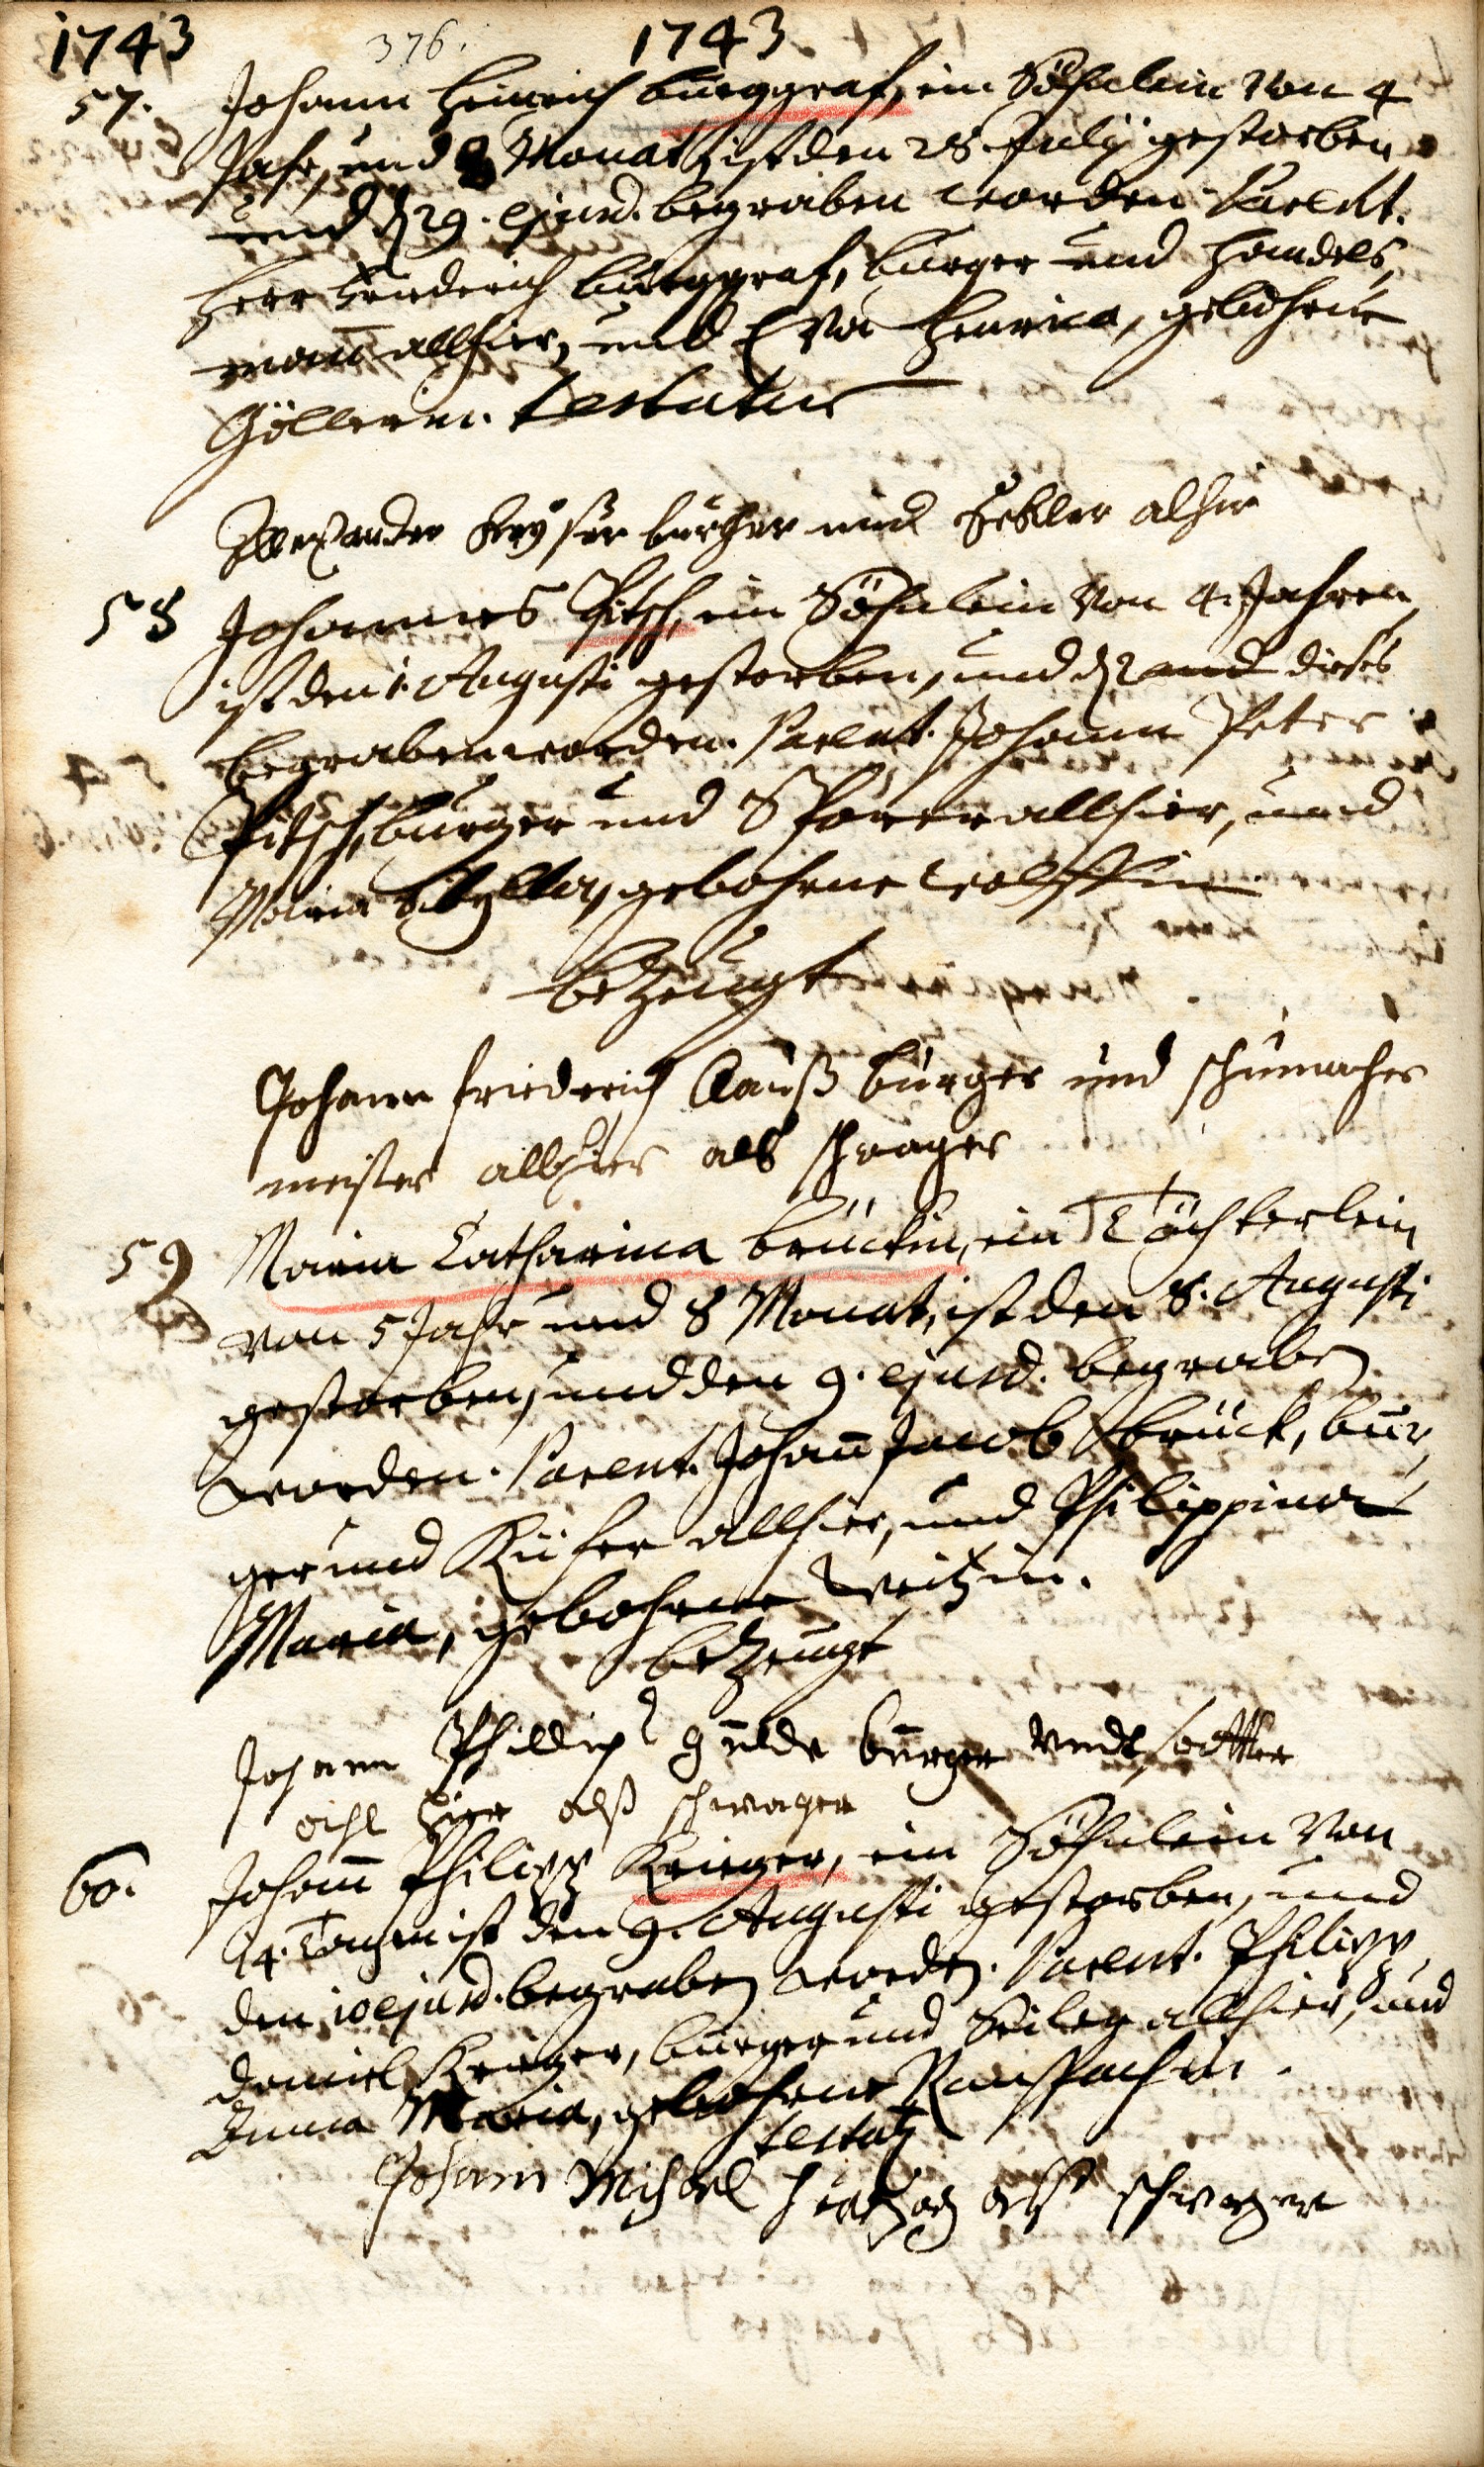 1743 376. 1743
57. Johann Heinrich burggraf, ein Söhnlein von 4
Jahr, und Monat, ist den 28. July gestorben
und d 29. ejusd. begraben worden. Parent.
Herr Friderich burggraf, burger und Handels,
mañ allhier, und Eva Henrica, gebohrne
Göllerin. testatur
Allexander burger und allhie
58 Johannes Pitsch, ein Söhnlein von 4. Jahren,
ist den 1. Augusti gestorben, und d 2 dieses
begraben worden. Parent. Johann Peter
Pitsch, burger und Sporer allhier, und
Maria Sibylla, gebohrne Wolffin
bezeugt
Johann friederich Clauß burger und schumacher
meister allhier als schwager
59 Maria Catharina brückin, ein Töchterlein
von 5 Jahr und 8 Monat, ist den 8. Augusti
gestorben, und den 9. ejusd. begraben
worden. Parent. Johañ Jacob brück, bur,
ger und Küfer allhier, und Philippina
Maria, gebohrne Weitzin.
bezeugt
Johann Phillip burger undt sattler
alhier alß schwager
60. Johañ Philipp Krieger, ein Söhnlein von
14. Tagen ist den 9. Augusti gestorben, und
den 10 ejusd. begraben worden. Parent. Philipp
Daniel Krieger, burger und Seiler allhier, und
Anna Maria, gebohrne Ranspachin.
testat
Johann Michael alß schwager